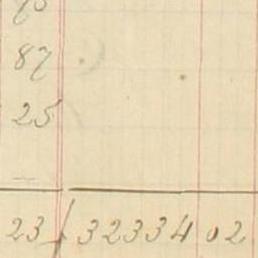 87
25
23 / 32334 02